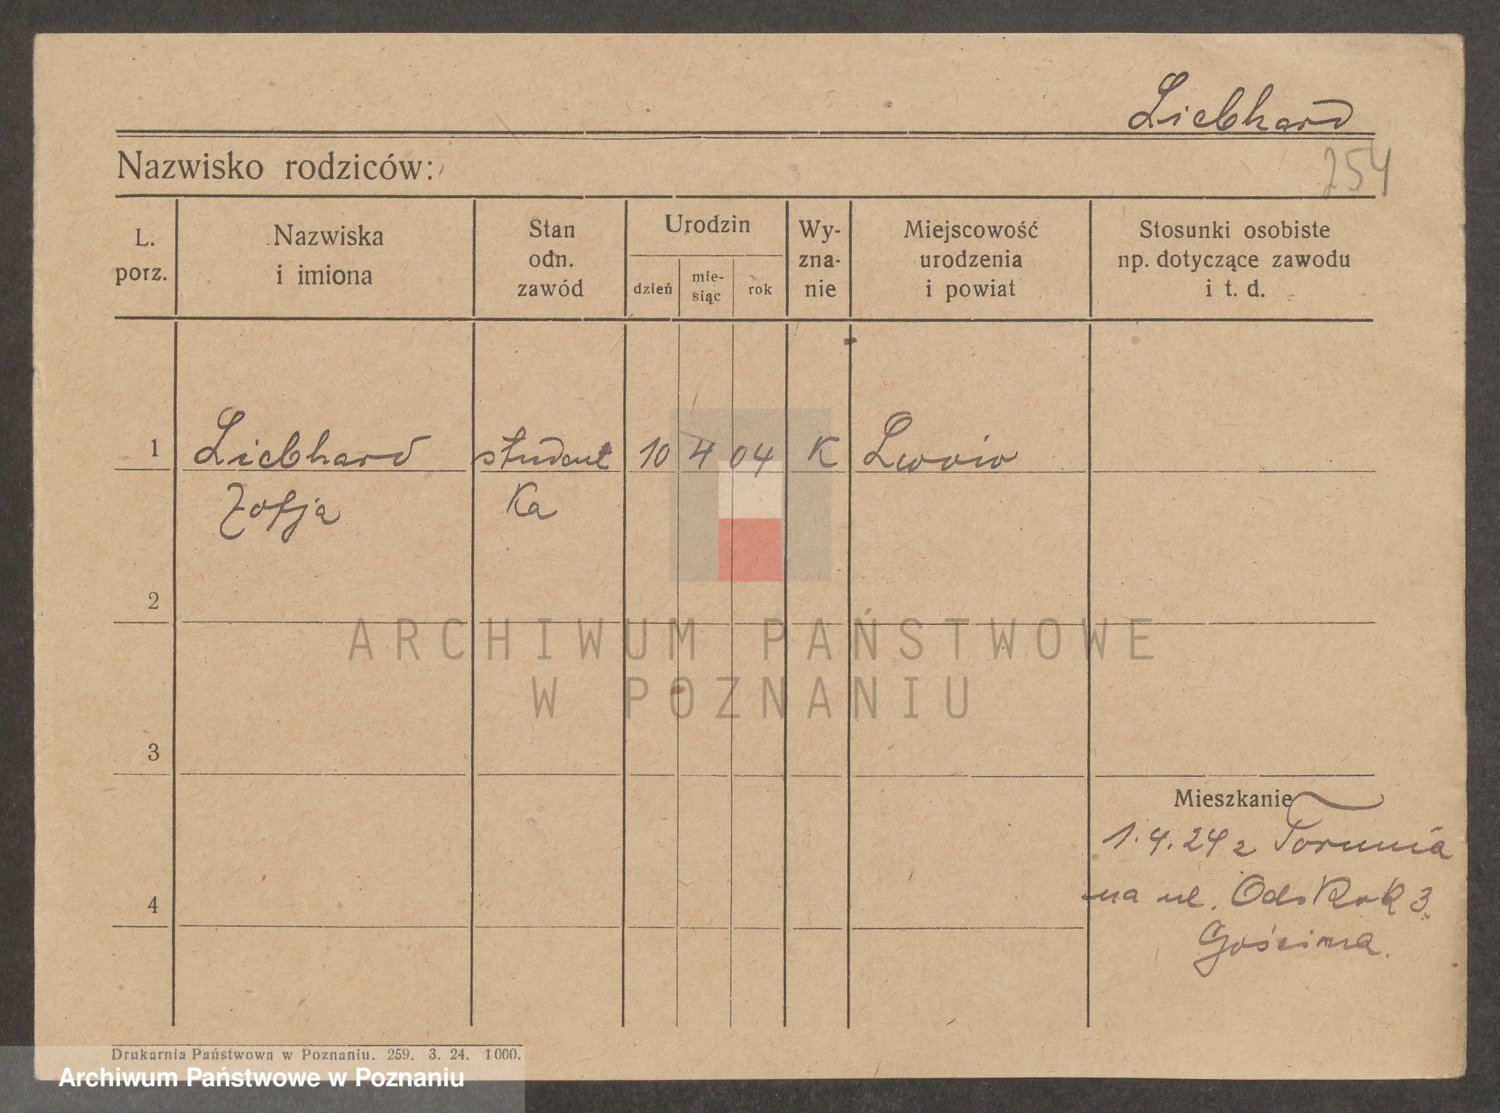 Liebhard
254
Nazwisko rodziców:
L. porz.
Nazwiska i imiona
Stan odn. zawód
Urodzin
dzień
mie-siąc
rok
Wy-zna-nie
Miejscowość urodzenia i powiat
Stosunki osobiste np. dotyczące zawodu i t. d.
1 Liebhard student 10 4 04 K Lwów
Zofja Ka
2
ARCHIWUM PAŃSTWOWE
W POZNANIU
3
Mieszkanie
1.4.24 z Torunia
4
na ul. 3
Gościnna.
Drukarnia Państwowa w Poznaniu. 259. 3. 24. 1000.
Archiwum Państwowe w Poznaniu